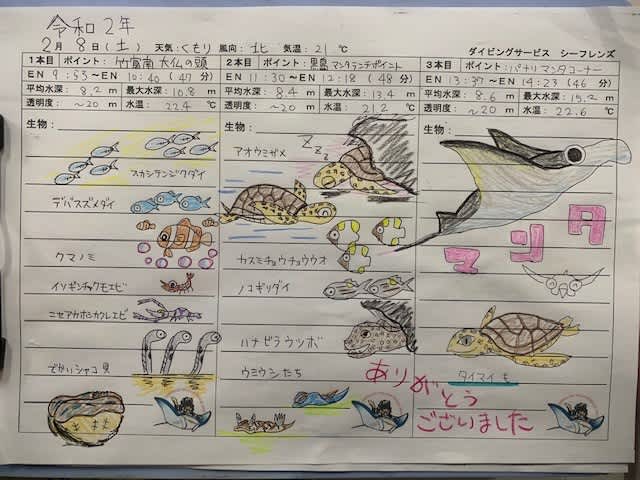 令和2年
2月8日(土) 天気:くもり 風向:北 気温:21℃
ダイビングサービス シーフレンズ
1本目 ポイント: 竹富南 大仏の頭
EN 9:53～EN 10:40 (47分)
平均水深: 8.2 m 最大水深: 10.8 m
透明度: ~20 m 水温: 22.4 ℃
生物:
スカシテンジクダイ
デバスズメダイ
クマノミ
イソギンチャクモエビ
ニセアカホシカクレエビ
でかいシャコ貝
2本目 ポイント: 黒島 マンタランデポイント
EN 11:30～EN 12:18 (48分)
平均水深: 8.4 m 最大水深: 13.4 m
透明度: ~20 m 水温: 21.2 ℃
生物:
アオウミガメ
ZZZ
カスミチョウチョウウオ
ノコギリダイ
ハナビラウツボ
ウミウシたち
3本目 ポイント: パナリ マンタコーナー
EN 13:37～EN 14:23 (46分)
平均水深: 8.6 m 最大水深: 15.2 m
透明度: ~20 m 水温: 22.6 ℃
生物:
マンタ
タイマイも
ありがとう
ございました